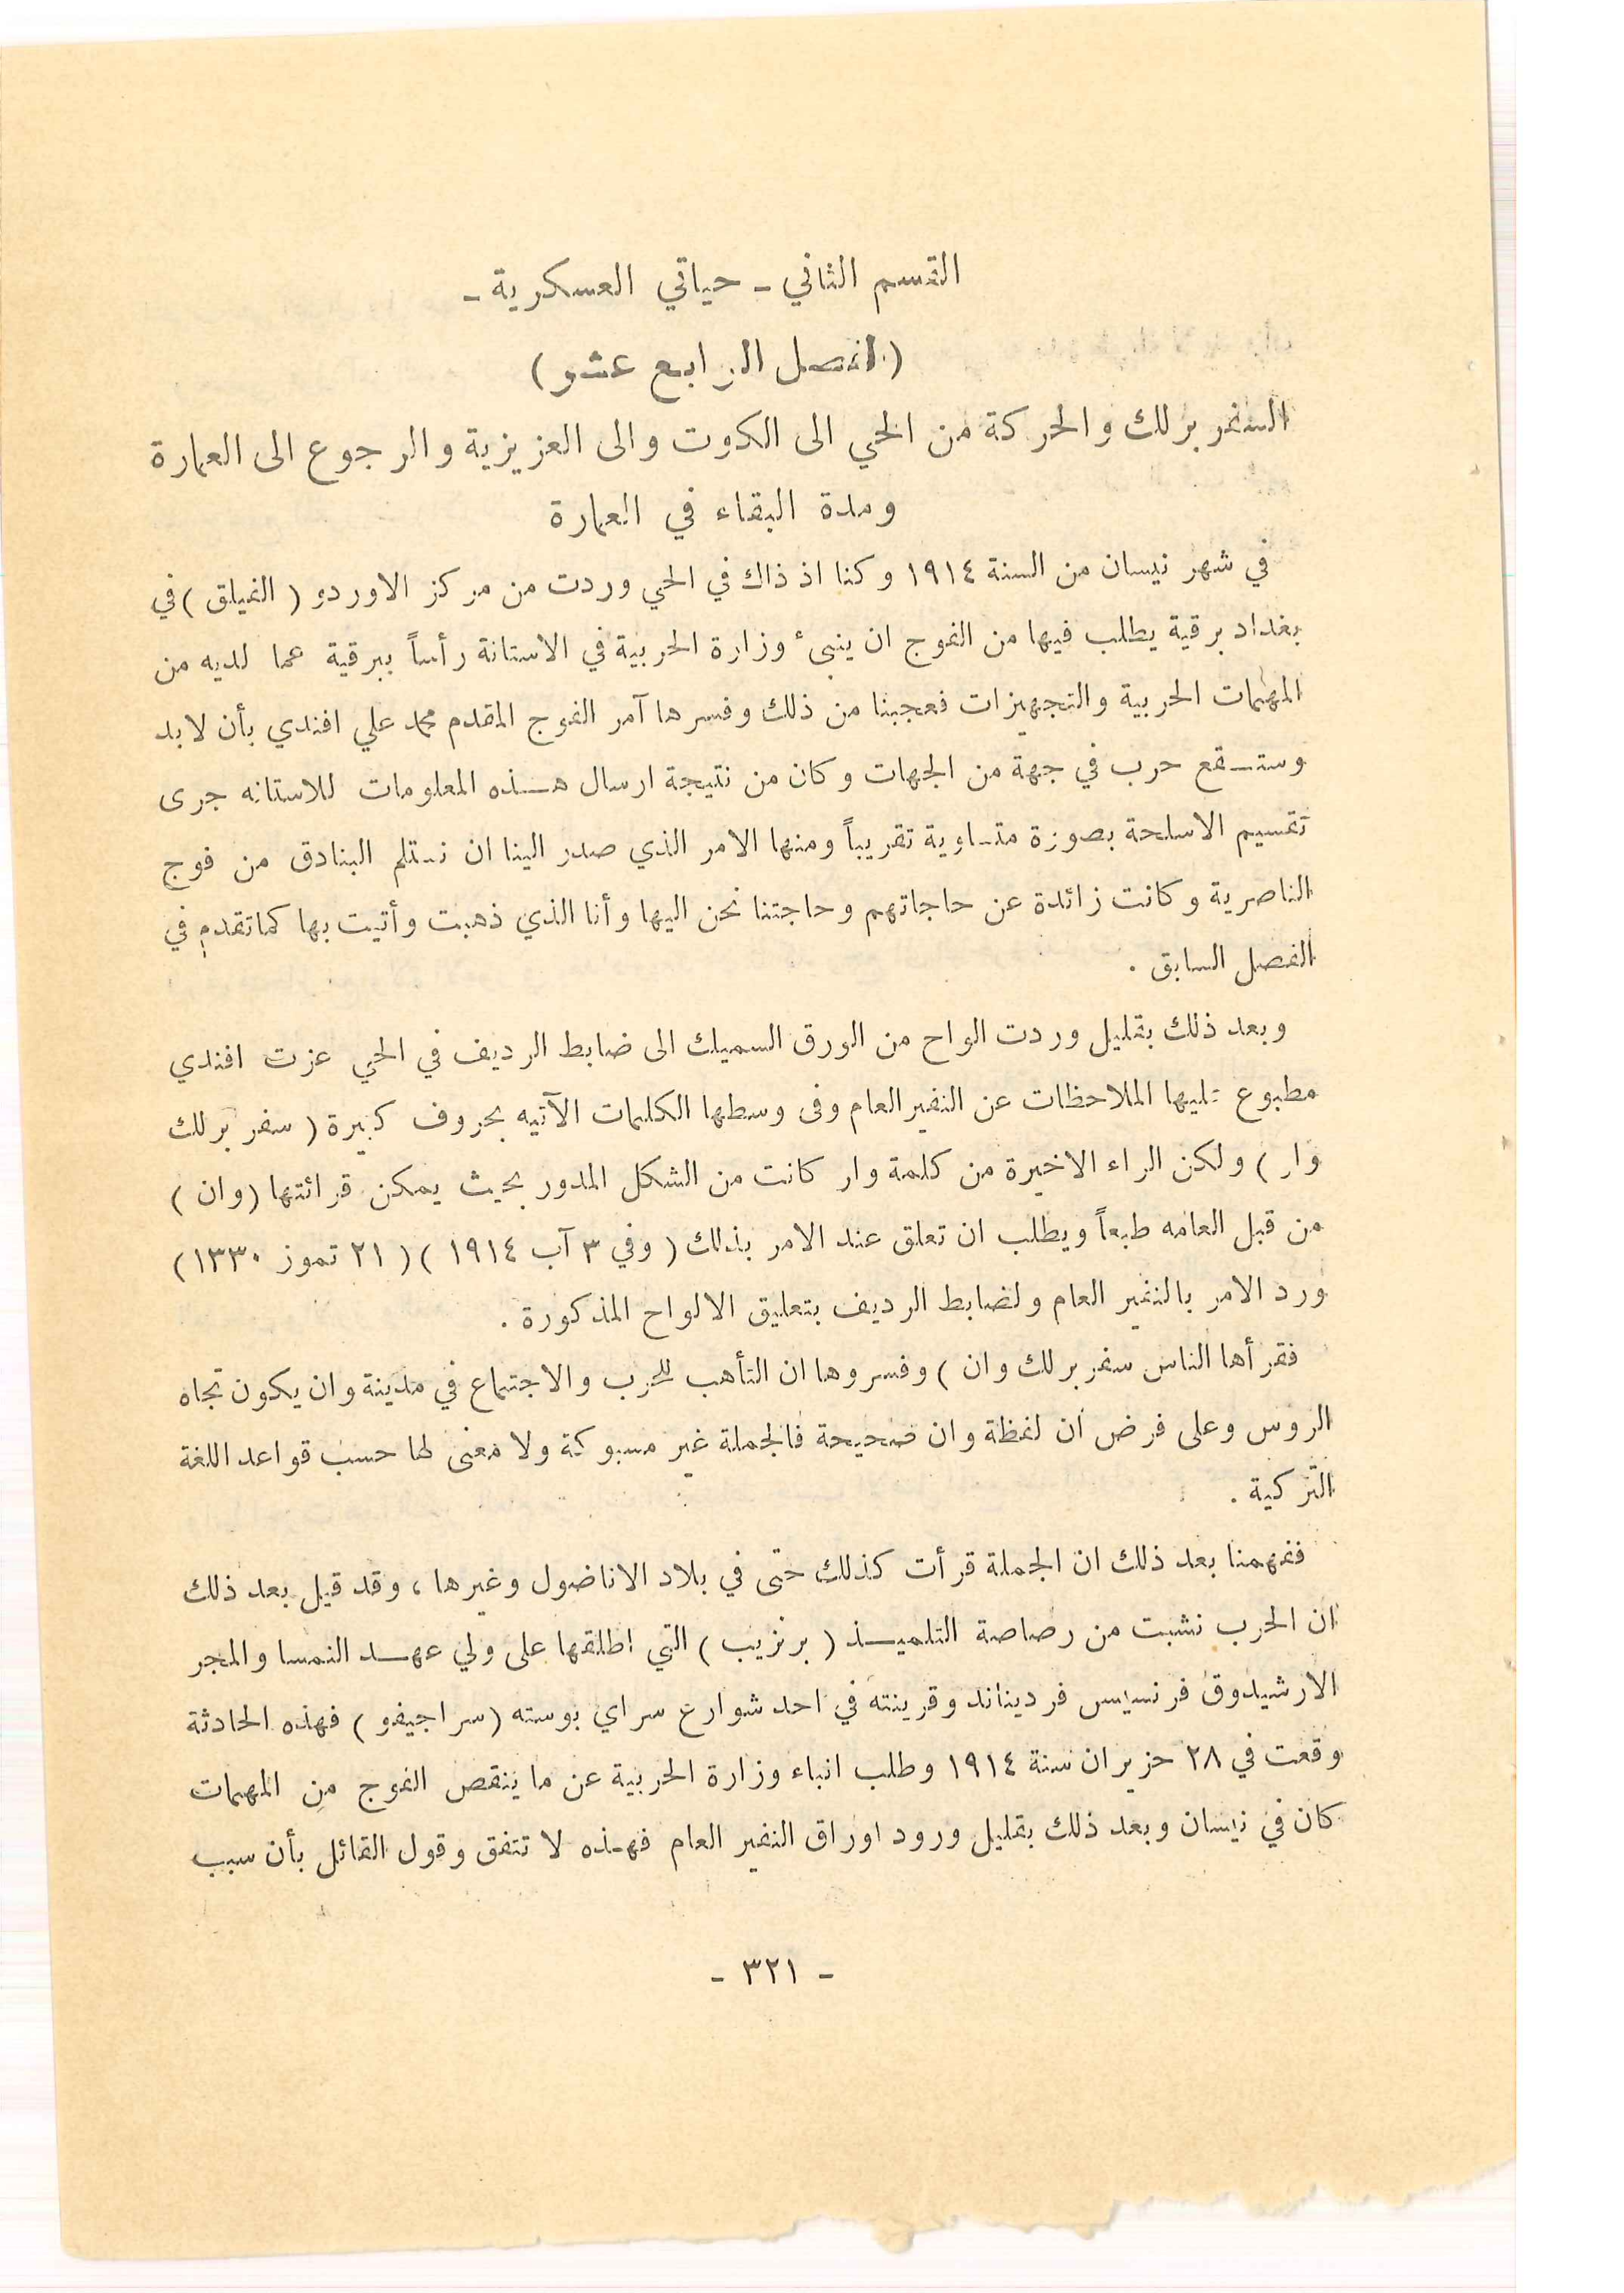 القسم الثاني - حياتي العسكرية -
(الفصل الرابع عشر)
السفر برلك والحركة من الحي الى الكوت والى العزيزية والرجوع الى العمارة
ومدة البقاء في العمارة
في شهر نيسان من السنة ١٩١٤ وكنا اذ ذاك في الحي وردت من مركز الاوردو ( الفيلق ) في
بغداد برقية يطلب فيها من الفوج ان ينبئ وزارة الحربية في الاستانة رأساً ببرقية عما لديه من
المهمات الحربية والتجهيزات فعجبنا من ذلك وفسرها آمر الفوج المقدم محمد علي افندي بأن لابد
وستـقع حرب في جهة من الجهات وكان من نتيجة ارسال هـذه المعلومات للاستانه جرى
تقسيم الاسلحة بصورة متـاوية تقريباً ومنها الامر الذي صدر الينا ان نـتلم البنادق من فوج
الناصرية وكانت زائدة عن حاجاتهم وحاجتنا نحن اليها وأنا الذي ذهبت وأتيت بها كما تقدم في
الفصل السابق .
وبعد ذلك بقليل وردت الواح من الورق السميك الى ضابط الرديف في الحي عزت افندي
مطبوع عليها الملاحظات عن النفير العام وفى وسطها الكلمات الآتيه بحروف كبيرة ( سفر برلك
وار ) ولكن الراء الاخيرة من كلمة وار كانت من الشكل المدور بحيث يمكن قرائتها ( وان )
من قبل العامه طبعاً ويطلب ان تعلق عند الامر بذلك ( وفي ٣ آب ١٩١٤ ) ( ٢١ تموز ١٣٣٠ )
ورد الامر بالنفير العام ولضابط الرديف بتعليق الالواح المذكورة .
فقرأها الناس سفر برلك وان ) وفسروها ان التأهب للحرب والاجتماع في مدينة وان يكون تجاه
الروس وعلى فرض ان لفظة وان صحيحة فالجملة غير مسبوكة ولا معنى لها حسب قواعد اللغة
التركية .
ففهمنا بعد ذلك ان الجملة قرأت كذلك حتى في بلاد الاناضول وغيرها ، وقد قيل بعد ذلك
ان الحرب نشبت من رصاصة التلميـذ ( برنزيب ) التي اطلقها على ولي عهـد النمسا والمجر
الارشيدوق فرنسيس فرديناند وقرينته في احد شوارع سراي بوسته ( سراجيفو ) فهذه الحادثة
وقعت في ٢٨ حزيران سنة ١٩١٤ وطلب انباء وزارة الحربية عن ما ينقص الفوج من المهمات
كان في نيسان وبعد ذلك بقليل ورود اوراق النفير العام فهذه لا تتفق وقول القائل بأن سبب
- ٣٢١ -